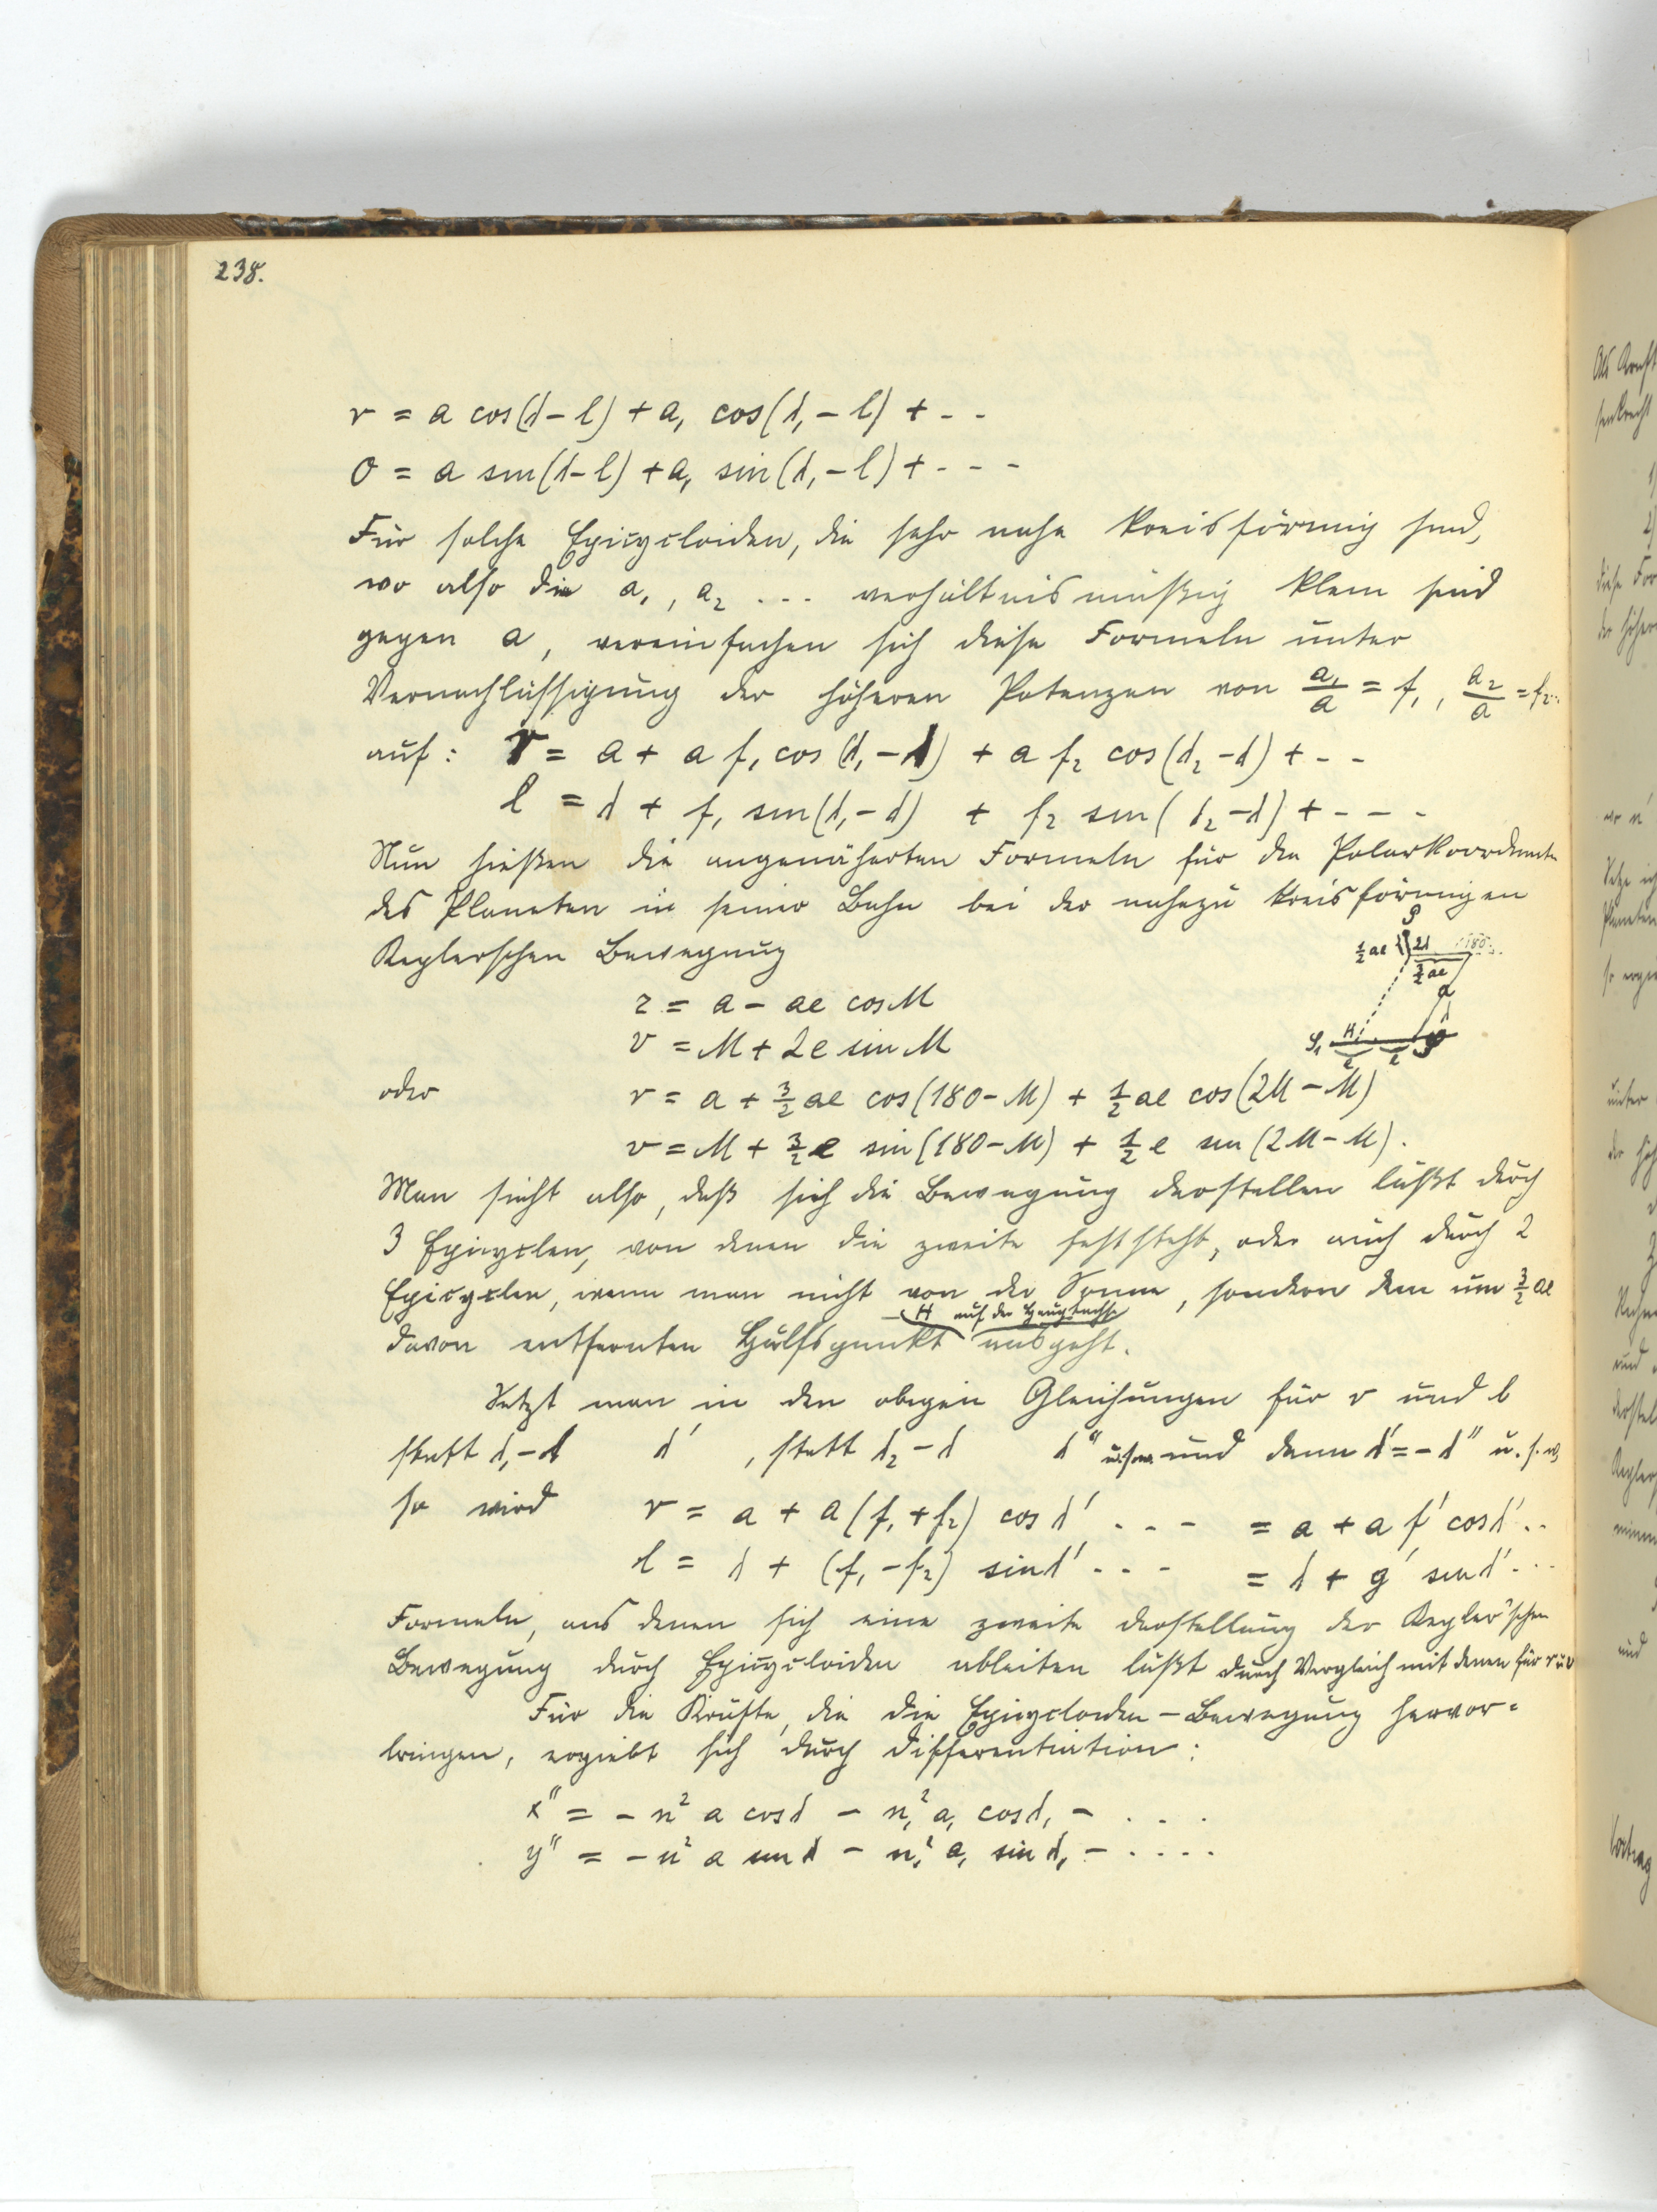 238.
r = a cos(λ-l) + a₁ cos(λ₁-l) + - -
0 = a sin(λ-l) + a₁ sin(λ₁-l) + - - -
Für solche Epicycloiden, die sehr nahe kreisförmig sind,
wo also die a₁, a₂ ... verhältnismäßig klein sind
gegen a, vereinfachen sich diese Formeln unter
Vernachlässigung der höheren Potenzen von a₁/a = f₁, a₂/a = f₂..
auf: r = a + a f₁ cos(λ₁-λ) + a f₂ cos(λ₂-λ) + - -
l = λ + f₁ sin(λ₁-λ) + f₂ sin(λ₂-λ) + - - -
Nun hießen die angenäherten Formeln für die Polarkoordinaten
des Planeten in seiner Bahn bei der nahezu kreisförmigen
Keplerschen Bewegung
P
½ae 2λ 180
3/2 ae
a
S₁ H
e e
r = a - ae cos M
v = M + 2e sin M
oder r = a + 3/2 ae cos(180-M) + ½ ae cos(2M-M)
v = M + 3/2 e sin(180-M) + ½ e sin(2M-M).
Man sieht also, daß sich die Bewegung darstellen läßt durch
3 Epicyclen, von denen die zweite feststeht, oder auch durch 2
Epicyclen, wenn man nicht von der Sonne, sondern dem um 3/2 ae
H auf der Hauptachse
davon entfernten Hülfspunkt ausgeht.
Setzt man in den obigen Gleichungen für r und l
statt λ₁-λ λ', statt λ₂-λ λ" u.s.w. und dann λ' = -λ" u.s.w.
so wird r = a + a(f₁+f₂) cos λ' - - - = a + a f' cos λ'..
l = λ + (f₁-f₂) sin λ' - - - = λ + g' sin λ'...
Formeln, aus denen sich eine zweite Darstellung der Kepler'schen
Bewegung durch Epicycloiden ableiten läßt durch Vergleich mit denen für r u v
Für die Kräfte, die die Epicycloiden-Bewegung hervor=
bringen, ergiebt sich durch Differentiation:
x" = -n² a cos λ - n₁² a₁ cos λ₁ - . . .
y" = -n² a sin λ - n₁² a₁ sin λ₁ - . . . .